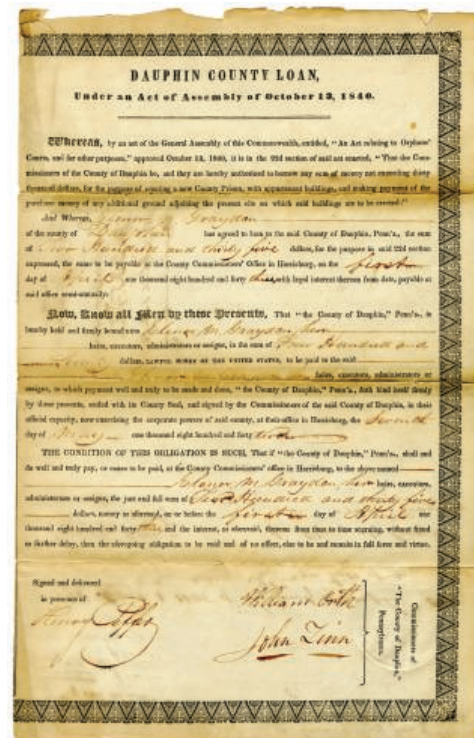 DAUPHIN COUNTY LOAN,
Under an Act of Assembly of October 13, 1840.
Whereas, by an act of the General Assembly of this Commonwealth, entitled, "An Act relating to Orphans'
Courts, and for other purposes," approved October 13, 1840, it is in the 22d section of said act enacted, "That the Com-
missioners of the County of Dauphin be, and they are hereby authorized to borrow any sum of money not exceeding thirty
thousand dollars, for the purpose of erecting a new County Prison, with appurtenant buildings, and making payment of the
purchase money of any additional ground adjoining the present site on which said buildings are to be erected:"
And Whereas, Graydon
of the county of Dauphin has agreed to loan to the said County of Dauphin, Penn'a., the sum
of Two Hundred and thirty five dollars, for the purpose in said 22d section
expressed, the same to be payable at the County Commissioners' Office in Harrisburg, on the first
day of April one thousand eight hundred and forty three with legal interest thereon from date, payable at
said office semi-annually:
Now, Know all Men by these Presents, That "the County of Dauphin," Penn'a., is
hereby held and firmly bound unto Elenor M. Graydon, her
heirs, executors, administrators or assigns, in the sum of Four Hundred and
dollars, LAWFUL MONEY OF THE UNITED STATES, to be paid to the said
heirs, executors, administrators or
assigns, to which payment well and truly to be made and done, "the County of Dauphin," Penn'a., doth bind itself firmly
by these presents, sealed with its County Seal, and signed by the Commissioners of the said County of Dauphin, in their
official capacity, now exercising the corporate powers of said county, at their office in Harrisburg, the Seventh
day of May one thousand eight hundred and forty two
THE CONDITION OF THIS OBLIGATION IS SUCH, That if "the County of Dauphin," Penn'a., shall and
do well and truly pay, or cause to be paid, at the County Commissioners' office in Harrisburg, to the above named
Elenor M. Graydon, her heirs, executors,
administrators or assigns, the just and full sum of Two Hundred and thirty five
dollars, money as aforesaid, on or before the first day of April one
thousand eight hundred and forty three and the interest, as aforesaid, thereon from time to time accruing, without fraud
or further delay, then the foregoing obligation to be void and of no effect, else to be and remain in full force and virtue.
Signed and delivered
in presence of
Henry
William
John Zinn
Commissioners of
"The County of Dauphin,"
Pennsylvania.